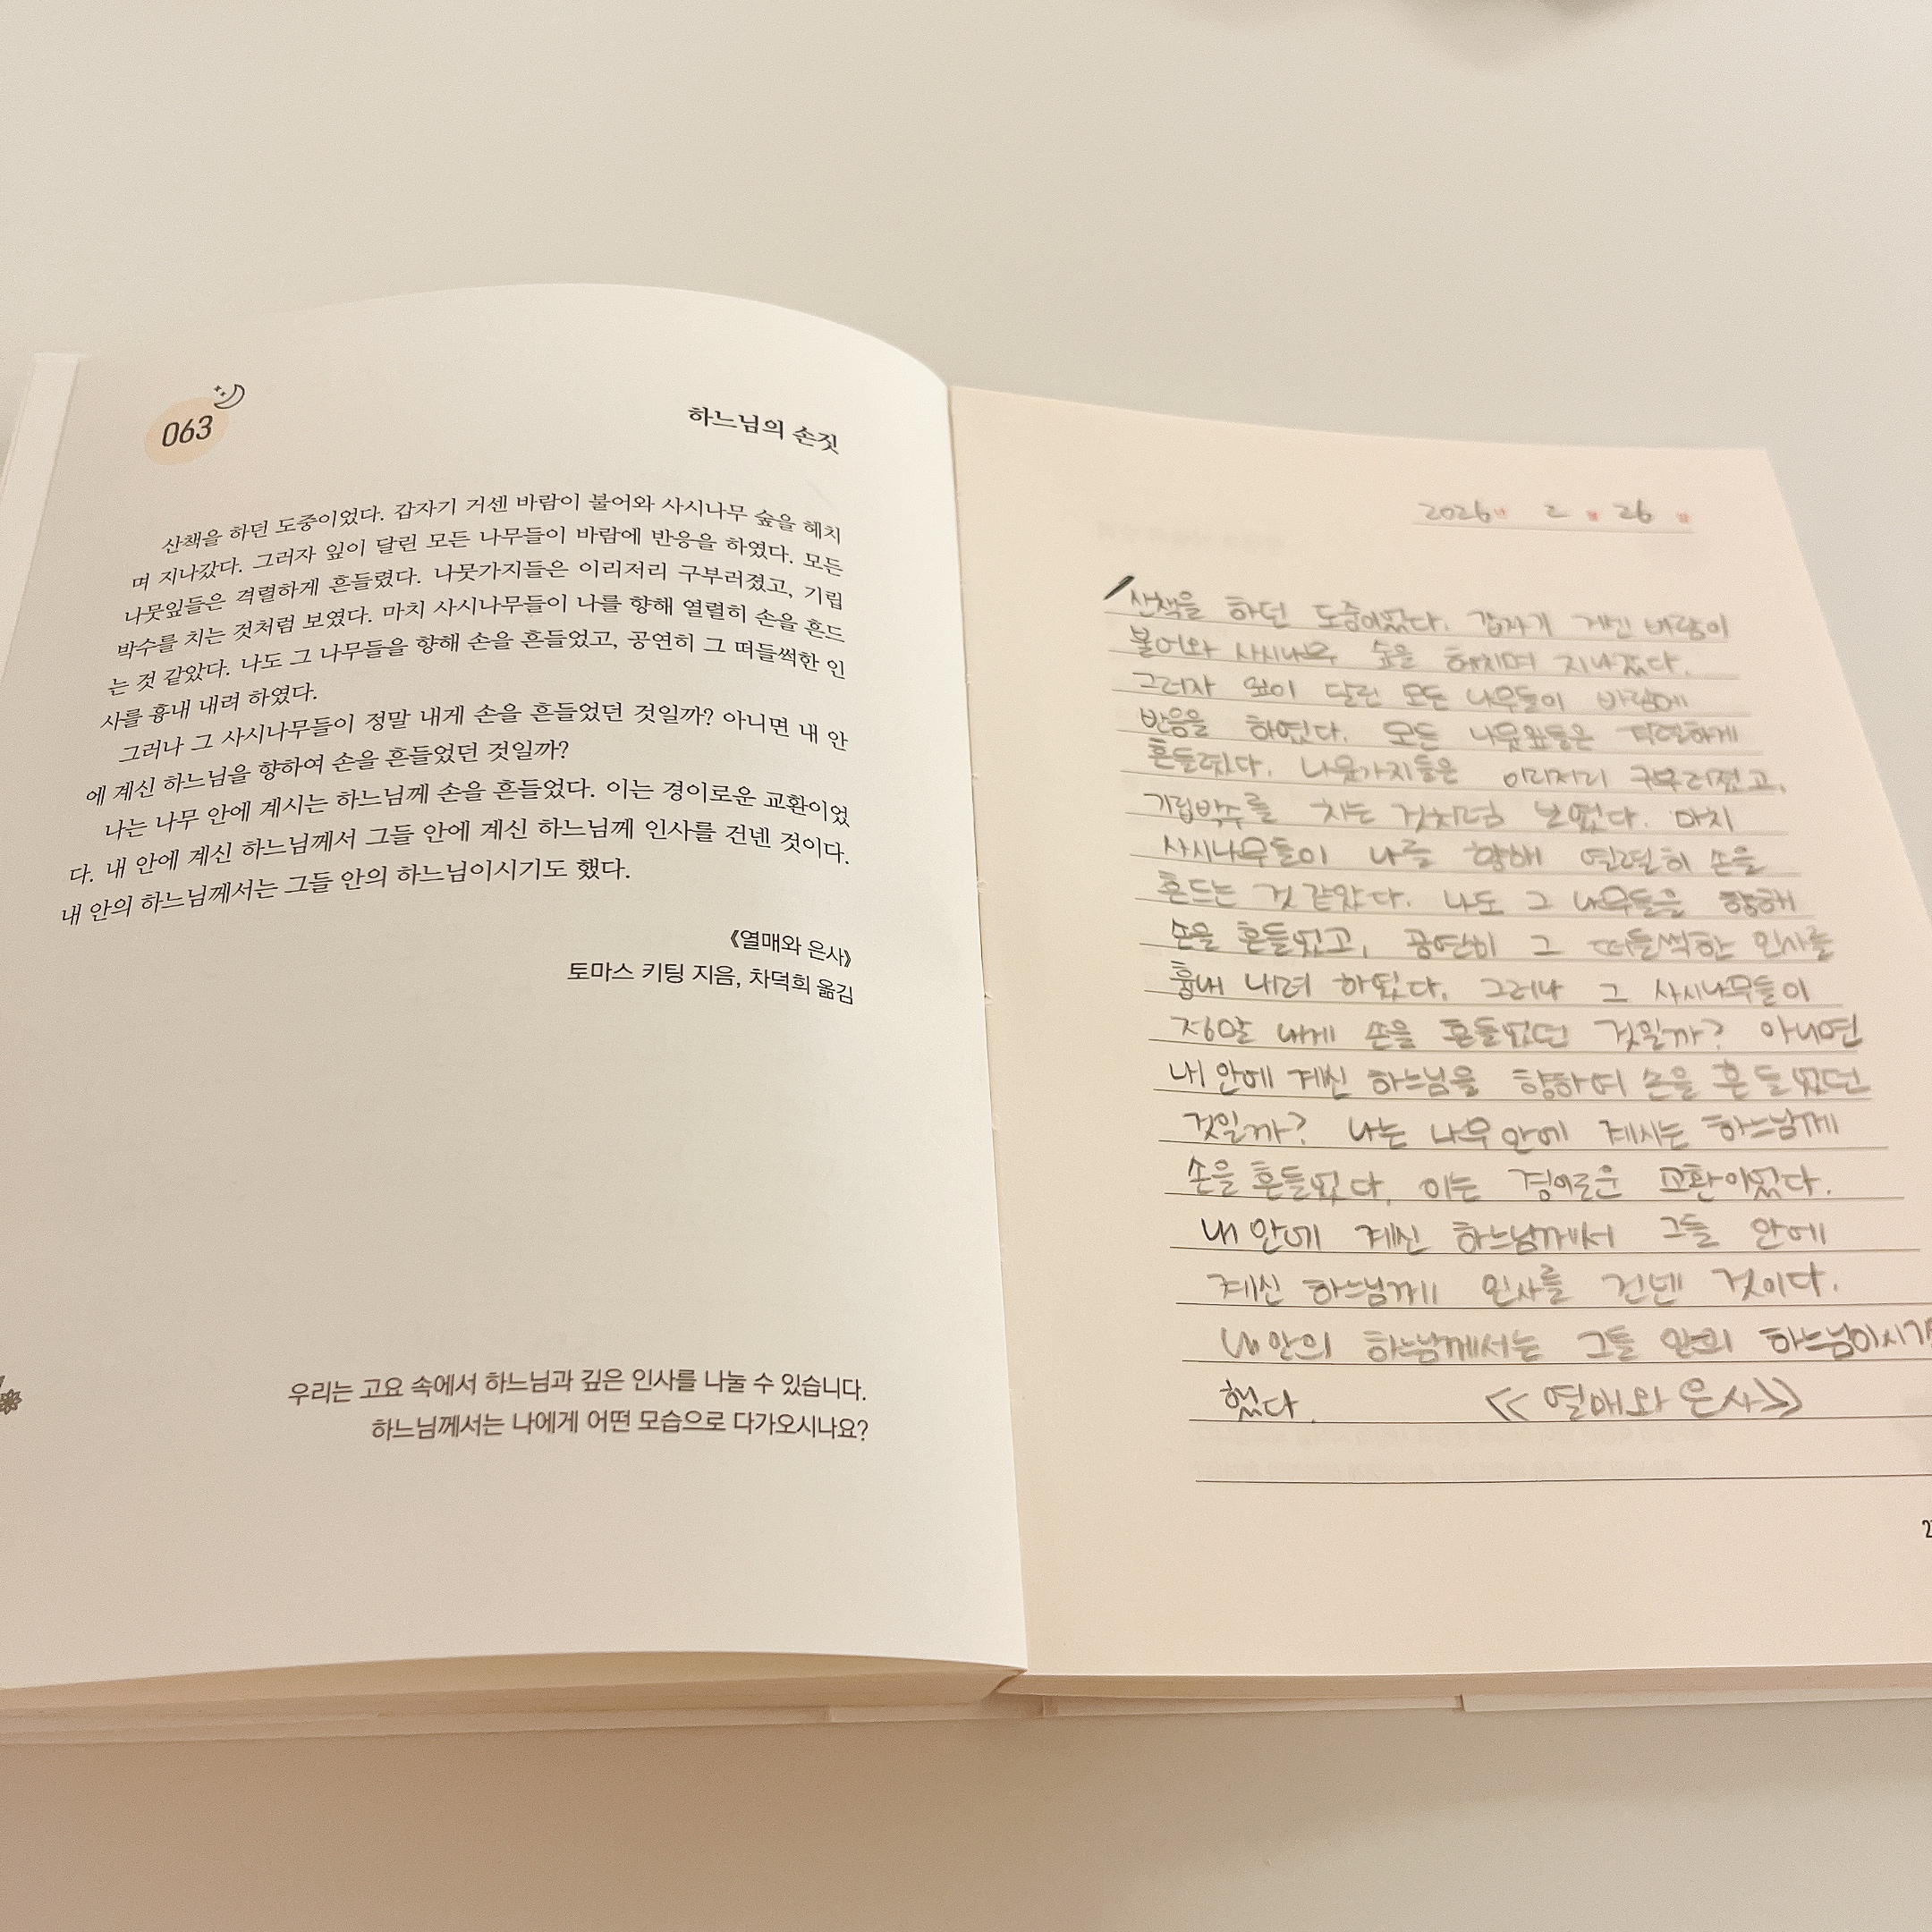 063
하느님의 손짓
산책을 하던 도중이었다. 갑자기 거센 바람이 불어와 사시나무 숲을 헤치
며 지나갔다. 그러자 잎이 달린 모든 나무들이 바람에 반응을 하였다. 모든
나뭇잎들은 격렬하게 흔들렸다. 나뭇가지들은 이리저리 구부러졌고, 기립
박수를 치는 것처럼 보였다. 마치 사시나무들이 나를 향해 열렬히 손을 흔드
는 것 같았다. 나도 그 나무들을 향해 손을 흔들었고, 공연히 그 떠들썩한 인
사를 흉내 내려 하였다.
그러나 그 사시나무들이 정말 내게 손을 흔들었던 것일까? 아니면 내 안
에 계신 하느님을 향하여 손을 흔들었던 것일까?
나는 나무 안에 계시는 하느님께 손을 흔들었다. 이는 경이로운 교환이었
다. 내 안에 계신 하느님께서 그들 안에 계신 하느님께 인사를 건넨 것이다.
내 안의 하느님께서는 그들 안의 하느님이시기도 했다.
《열매와 은사》
토마스 키팅 지음, 차덕희 옮김
우리는 고요 속에서 하느님과 깊은 인사를 나눌 수 있습니다.
하느님께서는 나에게 어떤 모습으로 다가오시나요?
2026년 2 월 26 일
산책을 하던 도중이었다. 갑자기 거센 바람이
불어와 사시나무 숲을 헤치며 지나갔다.
그러자 잎이 달린 모든 나무들이 바람에
반응을 하였다. 모든 나뭇잎들은 격렬하게
흔들렸다. 나뭇가지들은 이리저리 구부러졌고,
기립박수를 치는 것처럼 보였다. 마치
사시나무들이 나를 향해 열렬히 손을
흔드는 것 같았다. 나도 그 나무들을 향해
손을 흔들었고, 공연히 그 떠들썩한 인사를
흉내 내려 하였다. 그러나 그 사시나무들이
정말 내게 손을 흔들었던 것일까? 아니면
내 안에 계신 하느님을 향하여 손을 흔들었던
것일까? 나는 나무 안에 계시는 하느님께
손을 흔들었다. 이는 경이로운 교환이었다.
내 안에 계신 하느님께서 그들 안에
계신 하느님께 인사를 건넨 것이다.
내 안의 하느님께서는 그들 안의
했다. ≪열매와 은사≫